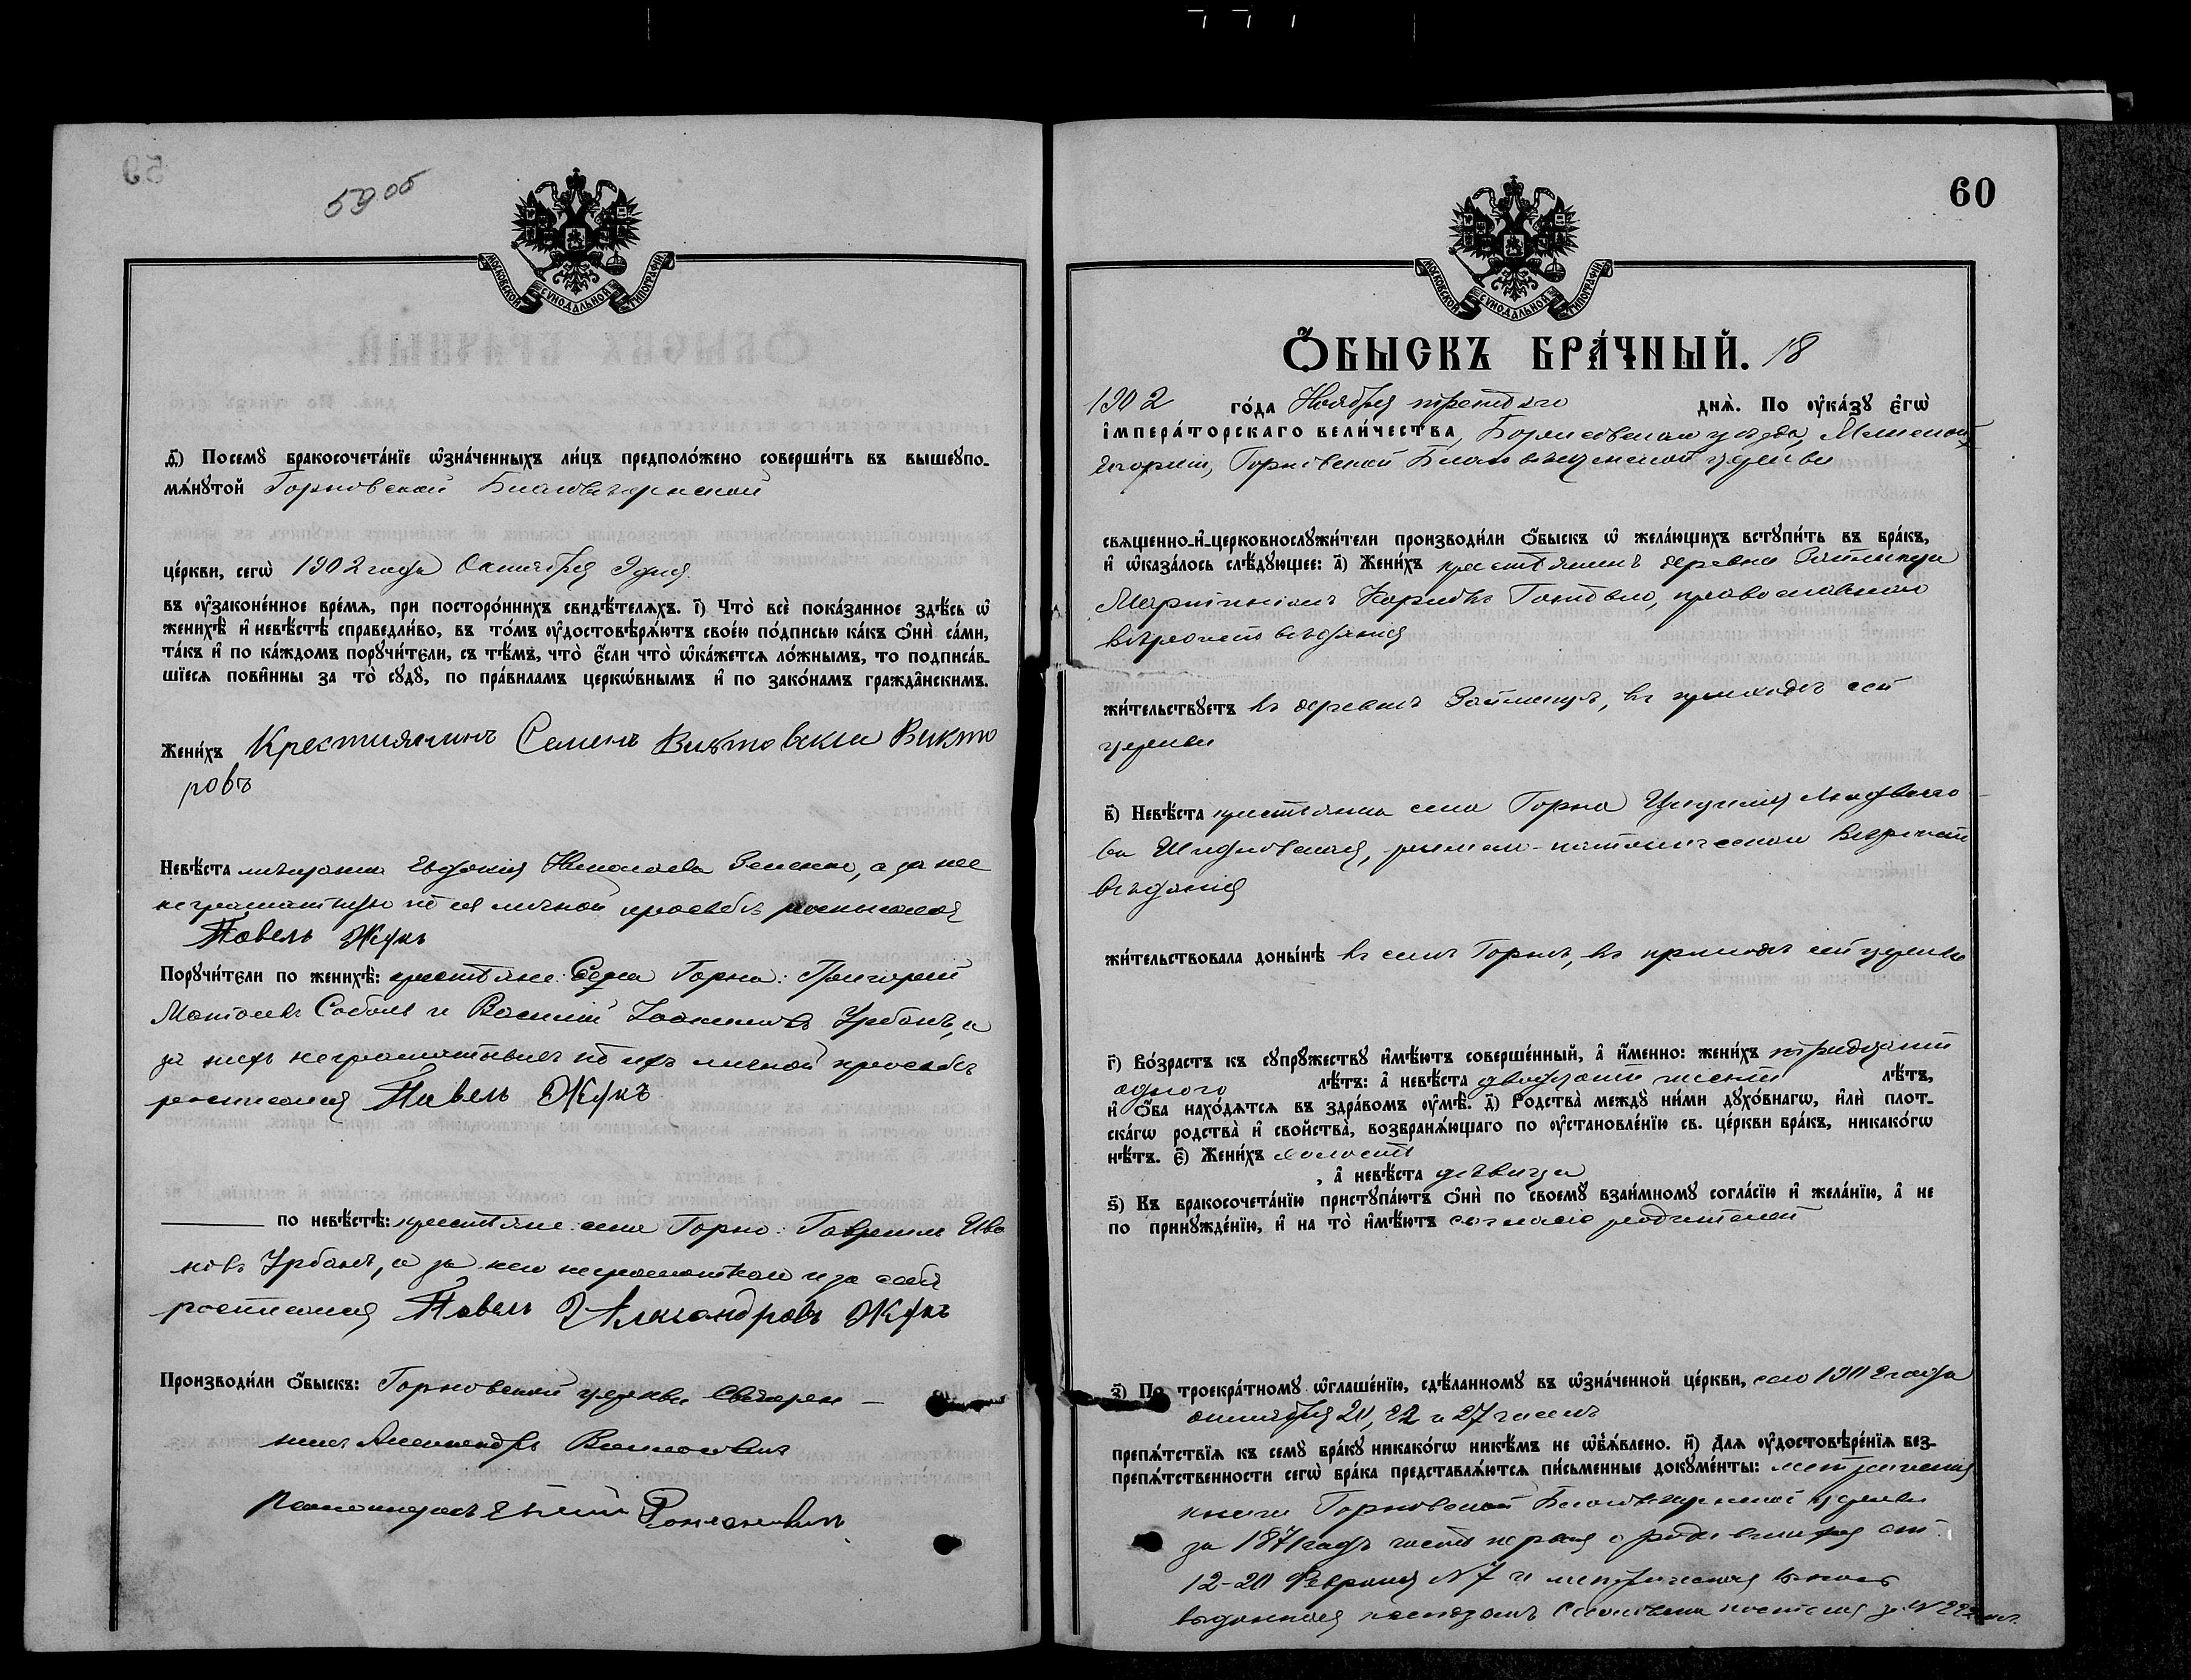 59 об
МОСКОВСКОЙ СѴНОДАЛЬНОЙ ТИПОГРАФІИ
д҃і) Посемꙋ бракосочета́нїе ѡ҆зна́ченныхъ ли́цъ предполо́жено соверши́ть въ вышеꙋпо-
мѧ́нꙋтой Горновской Благовѣщенской
це́ркви, сегѡ̀ 1902 года Октября 9 дня.
въ ᲂу҆законе́нное вре́мѧ, при посторо́ннихъ свидѣ́телѧхъ. і҃) Что̀ всѐ пока́занное здѣ́сь ѡ҆
женихѣ̀ и҆ невѣ́стѣ справедли́во, въ то́мъ ᲂу҆достовѣрѧ́ютъ свое́ю по́дписью ка́къ ѻ҆нѝ са́ми,
та́къ и҆ по ка́ждомъ порꙋчи́тели, съ тѣ́мъ, что̀ є҆́сли что̀ ѡ҆ка́жетсѧ ло́жнымъ, то подписа́в-
шїесѧ пови́нны за то̀ сꙋдꙋ̀, по пра́виламъ церкѡ́внымъ и҆ по зако́намъ гражда̂нскимъ.
Жени́хъ Крестиянинъ Семенъ Викто
ровъ
Невѣ́ста мѣщанка Евдокия Николаева Зеленко, а за нее
неграмотную по ея личной просьбѣ росписался
Павелъ Жукъ
Порꙋчи́тели по женихѣ̀: крестьяне: Села Горна: Григорий
Соболь и Василий Урбанъ, а
за нихъ неграмотныхъ по ихъ личной просьбѣ
росписался Павелъ Жукъ
по невѣ́стѣ: крестьяне села Горно: Гавриилъ Ива
новъ Урбанъ, а за него неграмотнаго и за себя
росписался Павелъ Александровъ Жукъ
Производи́ли ѻ҆́быскъ: Горновской церкви Священ-
никъ Александръ
60
МОСКОВСКОЙ СѴНОДАЛЬНОЙ ТИПОГРАФІИ
Ѻ҆́БЫСКЪ БРА́ЧНЫЙ. 18
1902 го́да Ноября третьяго днѧ̀. По ᲂу҆ка́зꙋ є҆гѡ̀
і҆мпера́торскаго вели́чества, Борисовскаго уѣзда, Минской
Епархіи, Горновской Благовѣщенской церкви
свѧщенно-и҆-церковнослꙋжи́тели производи́ли ѻ҆́быскъ ѡ҆ жела́ющихъ встꙋпи́ть въ бра́къ,
и҆ ѡ҆каза́лось слѣ́дꙋющее: а҃) Жени́хъ крестьянинъ деревни
православнаго
вѣроисповѣданія
жи́тельствꙋетъ въ деревнѣ въ приходѣ сей
церкви
в҃) Невѣ́ста крестьянка села Горна
римско-католическаго вѣроиспо
вѣданія
жи́тельствовала доны́нѣ въ селѣ Горнѣ, въ приходѣ сей церкви
г҃) Во́зрастъ къ сꙋпрꙋ́жествꙋ и҆мѣ́ютъ соверше́нный, а҆ и҆́менно: жени́хъ тридцати
одного лѣ́тъ: а҆ невѣ́ста двадцати шести лѣ́тъ,
и҆ ѻ҆́ба нахо́дѧтсѧ въ здра́вомъ ᲂу҆мѣ̀. д҃) Родства̀ междꙋ ни́ми дꙋхо́внагѡ, и҆лѝ плот-
ска́гѡ родства̀ и҆ свойства̀, возбранѧ́ющаго по ᲂу҆становле́нїю св. це́ркви бра́къ, никако́гѡ
нѣ́тъ. є҃) Жени́хъ холостъ
, а҆ невѣ́ста дѣвица
ѕ҃) Къ бракосочета́нїю пристꙋпа́ютъ ѻ҆нѝ по своемꙋ̀ взаи́мномꙋ согла́сїю и҆ жела́нїю, а҆ не
по принꙋжде́нїю, и҆ на то̀ и҆мѣ́ютъ согласіе родителей
з҃) По троекра́тномꙋ ѡ҆глаше́нїю, сдѣ́ланномꙋ въ ѡ҆зна́ченной це́ркви, сего 1902 года
октября 20, 22 и 27 числъ
препѧ́тствїѧ къ семꙋ̀ бра́кꙋ никако́гѡ никѣ́мъ не ѡ҆б̾ѧ́влено. и҃) Длѧ ᲂу҆достовѣре́нїѧ без-
препѧ́тственности сегѡ̀ бра́ка представлѧ́ютсѧ пи́сьменные докꙋме́нты: метрическія
книги Горновской Благовѣщенской церкви
за 1871 годъ часть первая о родившихся ст.
12-20 Февраля №7 и метрическая
выданная ксендзомъ